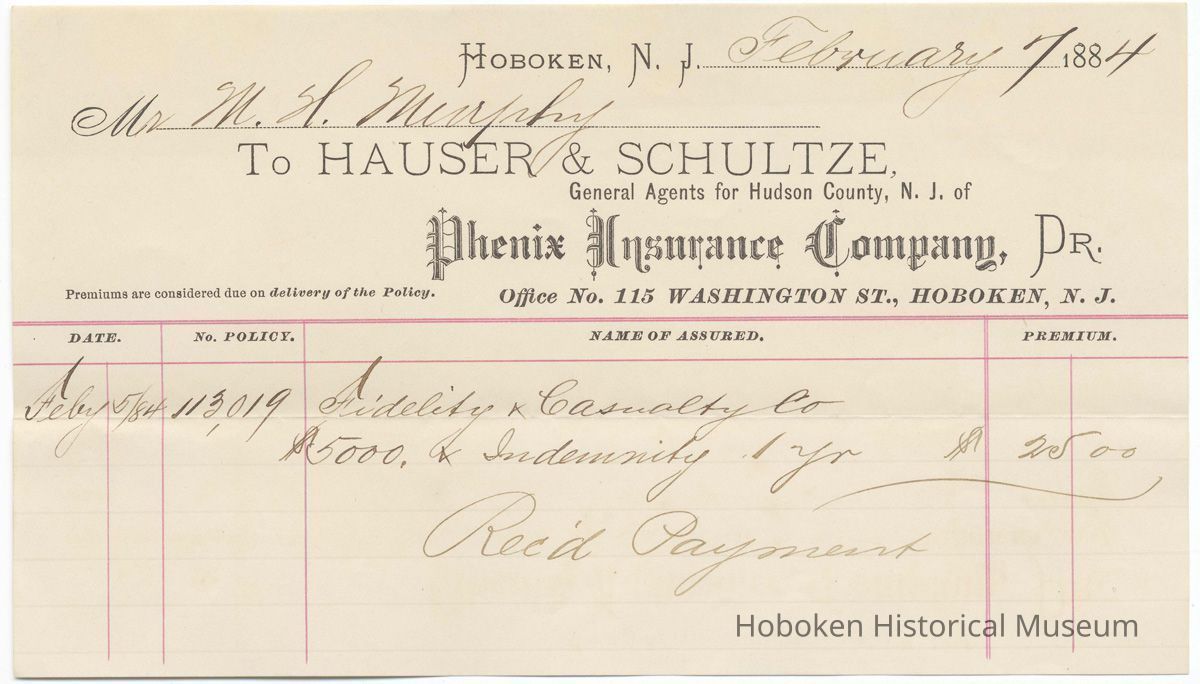 HOBOKEN, N. J. February 7 1884
Mr M. H. Murphy
To HAUSER & SCHULTZE,
General Agents for Hudson County, N. J. of
Phenix Insurance Company, DR.
Premiums are considered due on delivery of the Policy. Office No. 115 WASHINGTON ST., HOBOKEN, N. J.
DATE. No. POLICY. NAME OF ASSURED. PREMIUM.
Feby 5/84 113,019 Fidelity & Casualty Co
$5000. & Indemnity 1 yr $ 25 00
Rec'd Payment
Hoboken Historical Museum